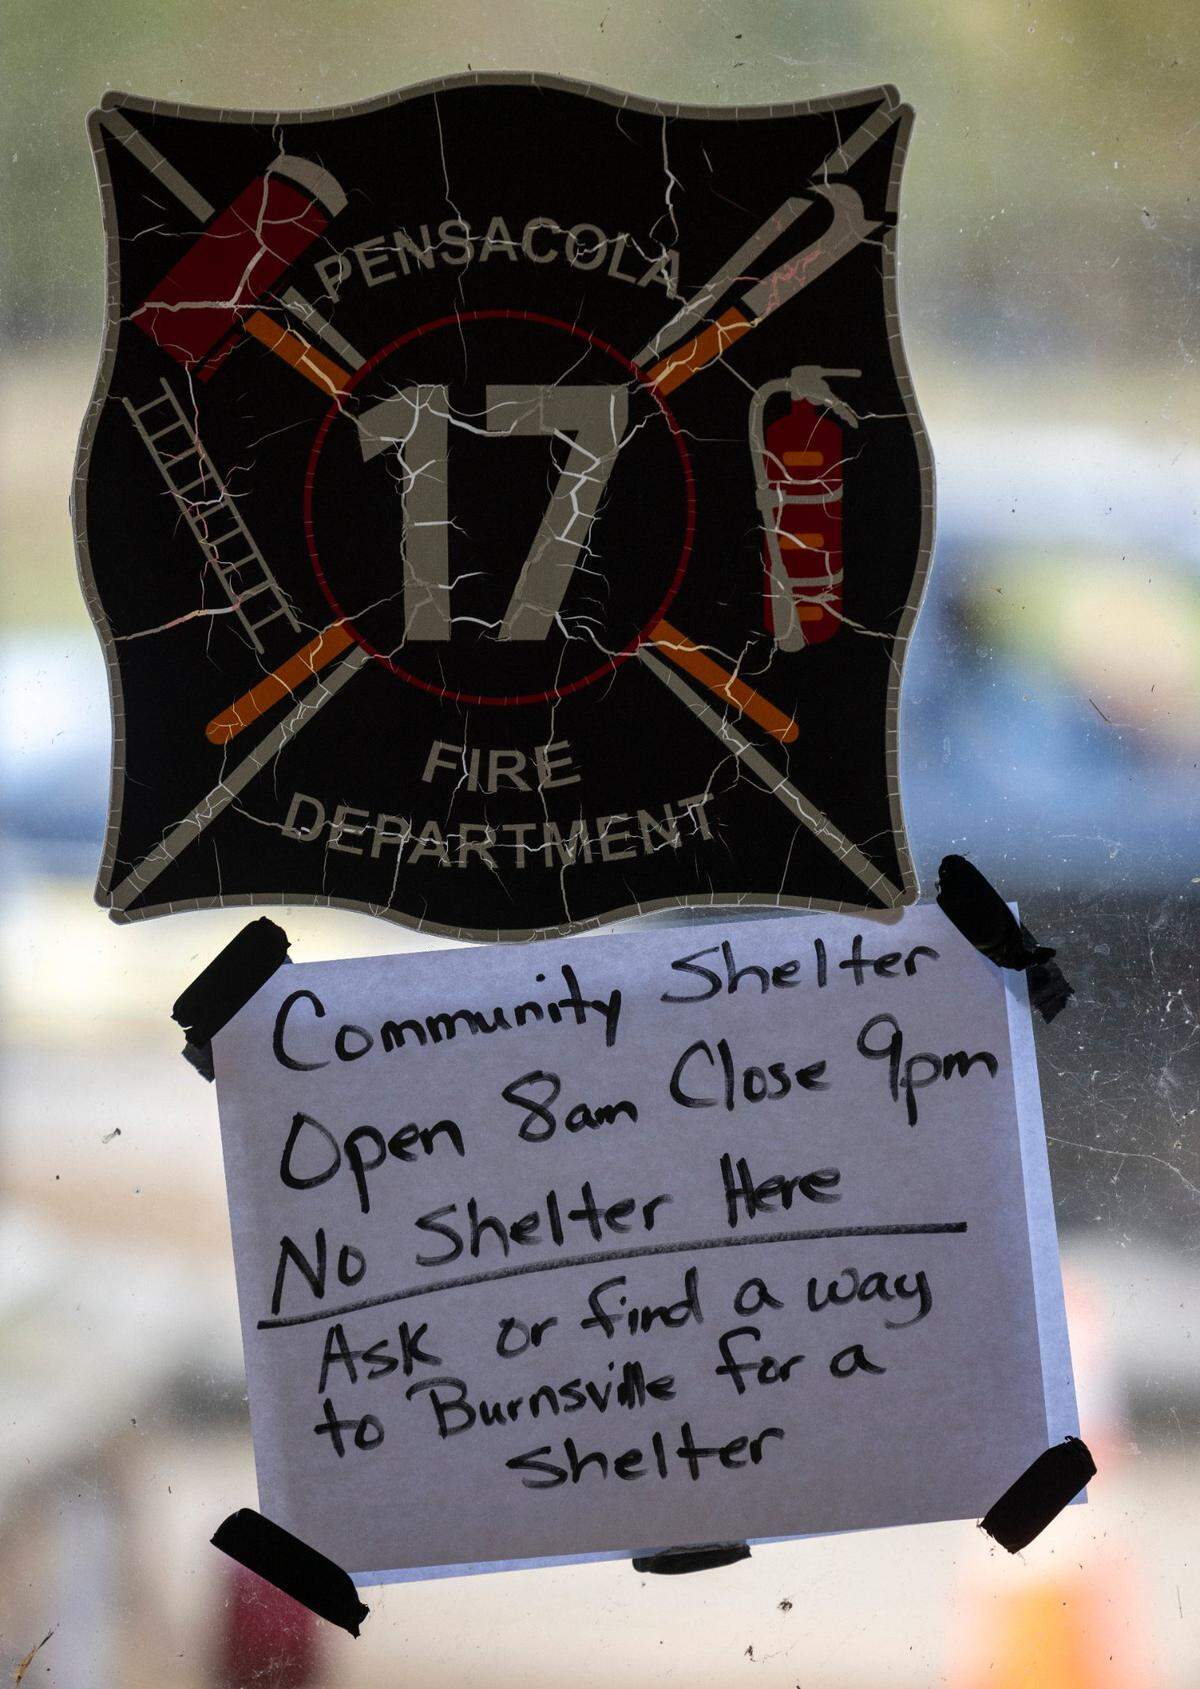 PENSACOLA
17
FIRE
DEPARTMENT
Community Shelter
Open 8am Close 9pm
No Shelter Here
Ask or find a way
to Burnsville for a
Shelter